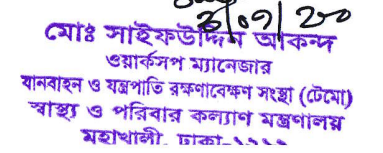 3/09/20
মোঃ সাইফউদ্দিন আকন্দ
ওয়ার্কসপ ম্যানেজার
যানবাহন ও যন্ত্রপাতি রক্ষণাবেক্ষণ সংস্থা (টেমো)
স্বাস্থ্য ও পরিবার কল্যাণ মন্ত্রণালয়
মহাখালী, ঢাকা-১২১২